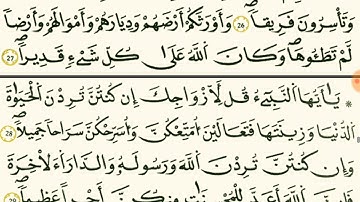 وَتَأْسِرُونَ فَرِيقاً ٢٦ وَأَوْرَثَكُمُ أَرْضَهُمْ وَدِيَارَهُمْ وَأَمْوَالَهُمْ وَأَرْضاً
لَّمْ تَطَـُٔوهَا وَكَانَ اللَّهُ عَلَىٰ كُلِّ شَيْءٍ قَدِيراً ٢٧
يَا أَيُّهَا النَّبِيءُ قُل لِّأَزْوَاجِكَ إِن كُنتُنَّ تُرِدْنَ الْحَيَوٰةَ
الدُّنْيَا وَزِينَتَهَا فَتَعَالَيْنَ أُمَتِّعْكُنَّ وَأُسَرِّحْكُنَّ سَرَاحاً جَمِيلاً ٢٨
وَإِن كُنتُنَّ تُرِدْنَ اللَّهَ وَرَسُولَهُ وَالدَّارَ الْأَخِرَةَ
فَإِنَّ اللَّهَ أَعَدَّ لِلْمُحْسِنَاتِ مِنكُنَّ أَجْراً عَظِيماً